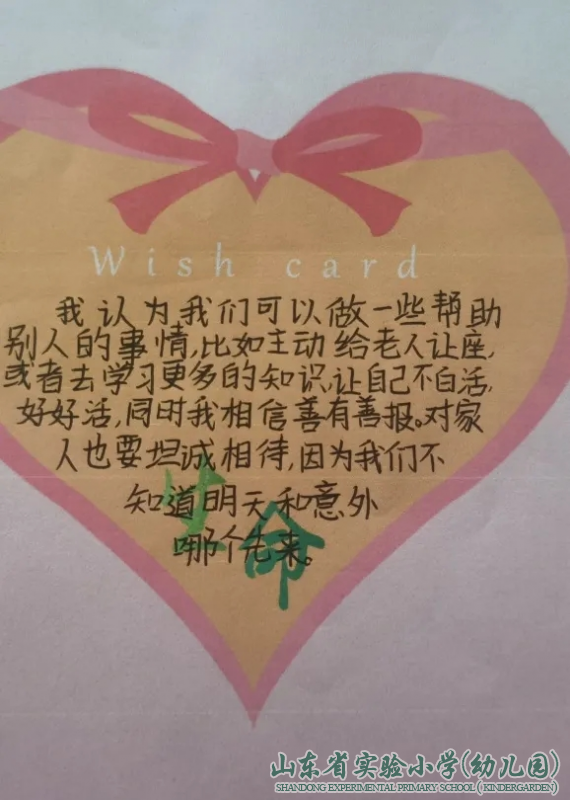 Wish card
我认为我们可以做一些帮助
别人的事情,比如主动给老人让座,
或者去学习更多的知识,让自己不白活,
好好活,同时我相信善有善报。对家
人也要坦诚相待,因为我们不
知道明天和意外
哪个先来。
生命
山东省实验小学(幼儿园)
SHANDONG EXPERIMENTAL PRIMARY SCHOOL (KINDERGARDEN)